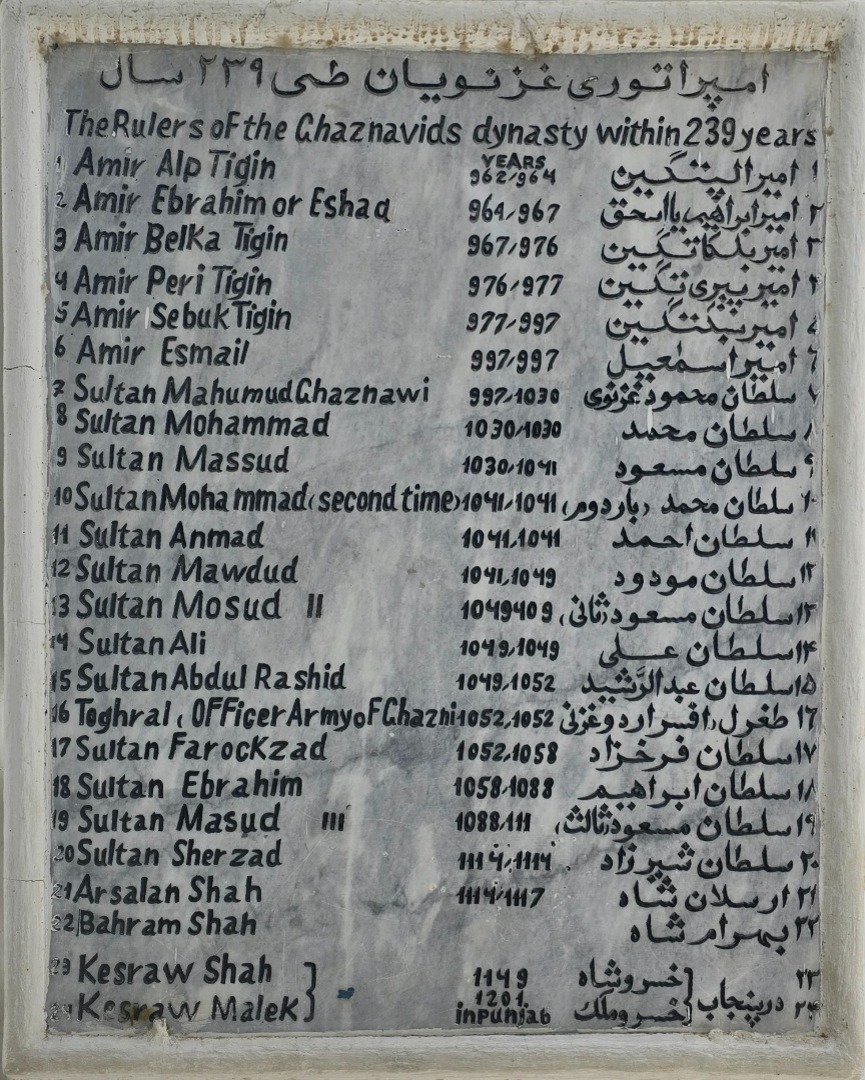 امپراتوری غزنویان طی ۲۳۹ سال
The Rulers oF the Ghaznavids dynasty within 239 years
YEARS
1 Amir Alp Tigin 962/964 امیر الپتگین ۱
2 Amir Ebrahim or Eshaq 964/967 امیر ابراهیم یا اسحق ۲
3 Amir Belka Tigin 967/976 امیر بلکاتگین ۳
4 Amir Peri Tigin 976/977 امیر پیری تگین ۴
5 Amir Sebuk Tigin 977/997 امیر سبکتگین ۵
6 Amir Esmail 997/997 امیر اسمعیل ۶
7 Sultan Mahumud Ghaznawi 997/1030 سلطان محمود غزنوی ۷
8 Sultan Mohammad 1030/1030 سلطان محمد ۸
9 Sultan Massud 1030/1041 سلطان مسعود ۹
10 Sultan Mohammad (second time) 1041/1041 سلطان محمد (بار دوم) ۱۰
11 Sultan Anmad 1041/1041 سلطان احمد ۱۱
12 Sultan Mawdud 1041/1049 سلطان مودود ۱۲
13 Sultan Mosud II 1049409 سلطان مسعود (ثانی) ۱۳
14 Sultan Ali 1049/1049 سلطان علی ۱۴
15 Sultan Abdul Rashid 1049/1052 سلطان عبدالرَّشید ۱۵
16 Toghral (OFFicer Army oF Ghazni 1052/1052 طغرل (افسر اردو غزنی ۱۶
17 Sultan Farockzad 1052/1058 سلطان فرخزاد ۱۷
18 Sultan Ebrahim 1058/1088 سلطان ابراهیم ۱۸
19 Sultan Masud III 1088/111 سلطان مسعود (ثالث) ۱۹
20 Sultan Sherzad 1114/1114 سلطان شیرزاد ۲۰
21 Arsalan Shah 1114/1117 ارسلان شاه ۲۱
22 Bahram Shah بهرام شاه ۲۲
23 Kesraw Shah 1149 خسروشاه ۲۳
24 Kesraw Malek 1201. خسرو ملک در پنجاب ۲۴
in Punjab